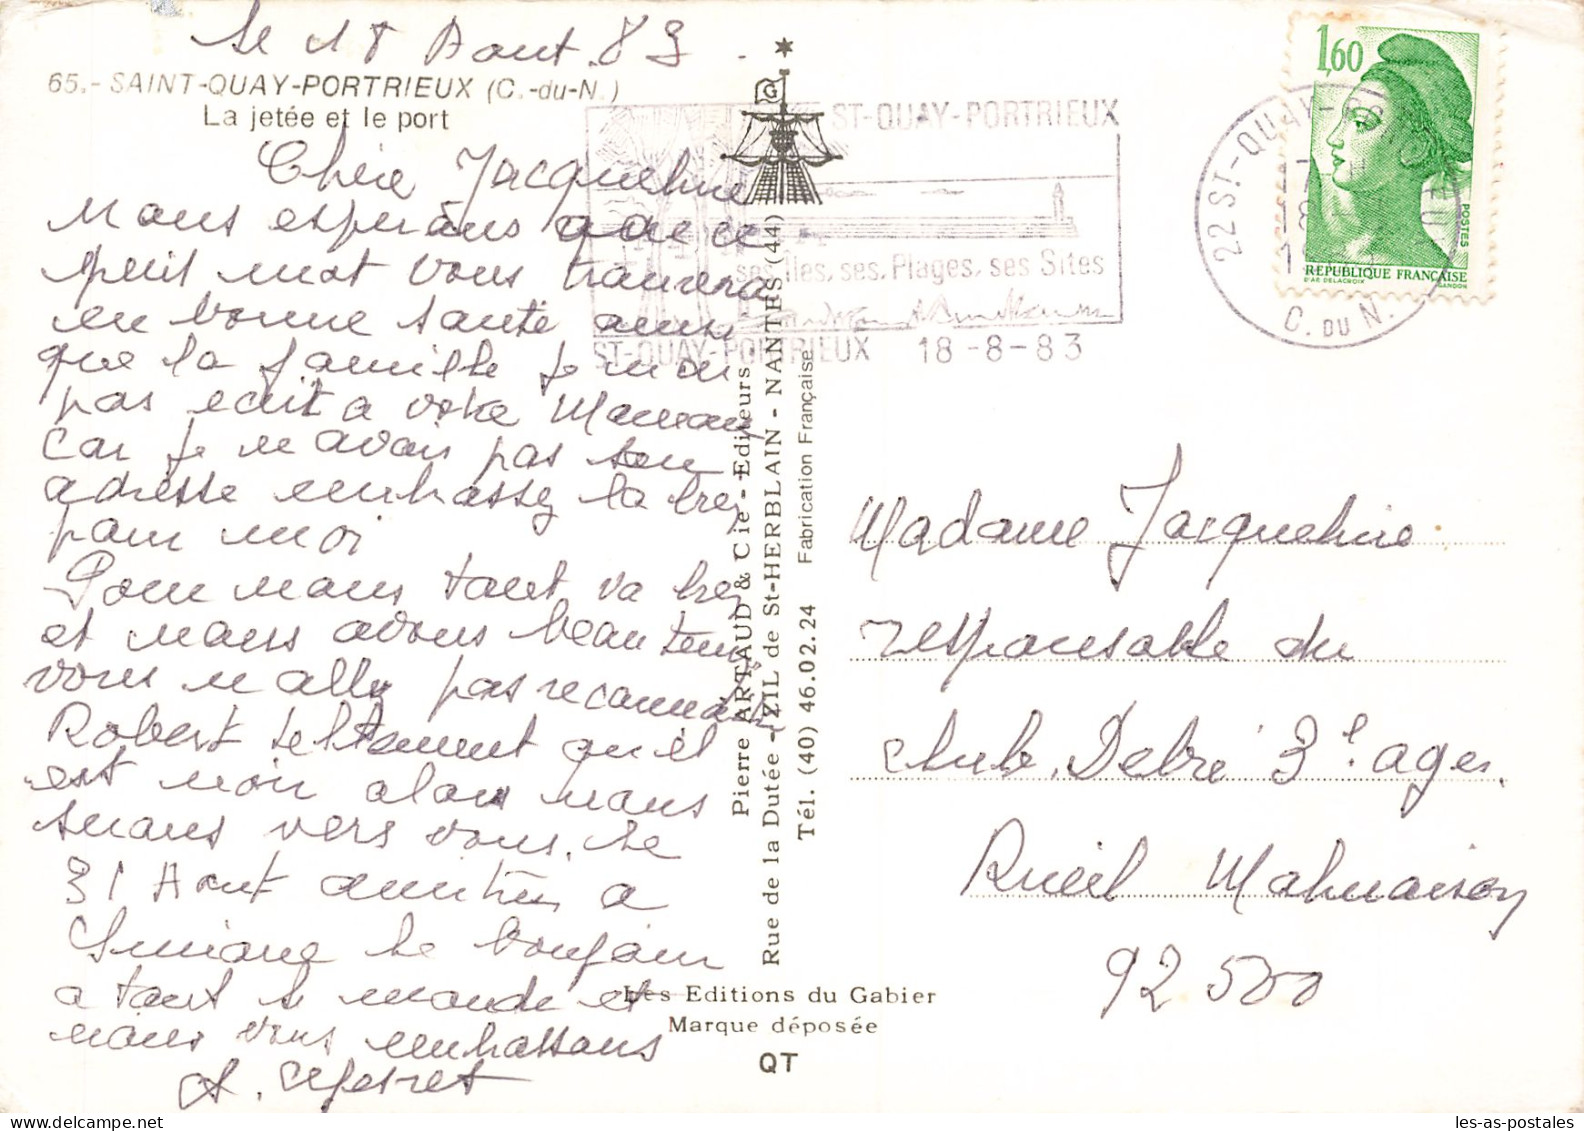 le 18 Aout 83
65.- SAINT-QUAY-PORTRIEUX (C.-du-N.)
La jetée et le port
Chère Jacqueline
nous espérons que ce
petit mot vous trouvera
en bonne santé ainsi
que la famille je n'ai
pas ecrit a votre Maman
car je n avais pas son
adresse embrassez la bien
pour moi
Pour nous tout va bien
et nous avons beau temps
vous n allez pas reconnaitre
Robert tellement qu il
est noir alors nous
serons vers vous le
31 Aout
Simone le bonjour
a tout le monde et
nous vous embrassons
G
Pierre ARTAUD & Cie - Editeurs
Rue de la Dutée - (ZIL de St-HERBLAIN - NANTES (44)
Tél. (40) 46.02.24 Fabrication Française
Les Editions du Gabier
Marque déposée
QT
ST-QUAY-PORTRIEUX
ses Iles, ses Plages, ses Sites
ST-QUAY-PORTRIEUX 18-8-83
22 ST-QUAY-
C. DU N.
1,60
POSTES
REPUBLIQUE FRANÇAISE
D'AP. DELACROIX GANDON
Madame Jacqueline
responsable du
club Debré 3e ages
Rueil Malmaison
92500
les-as-postales